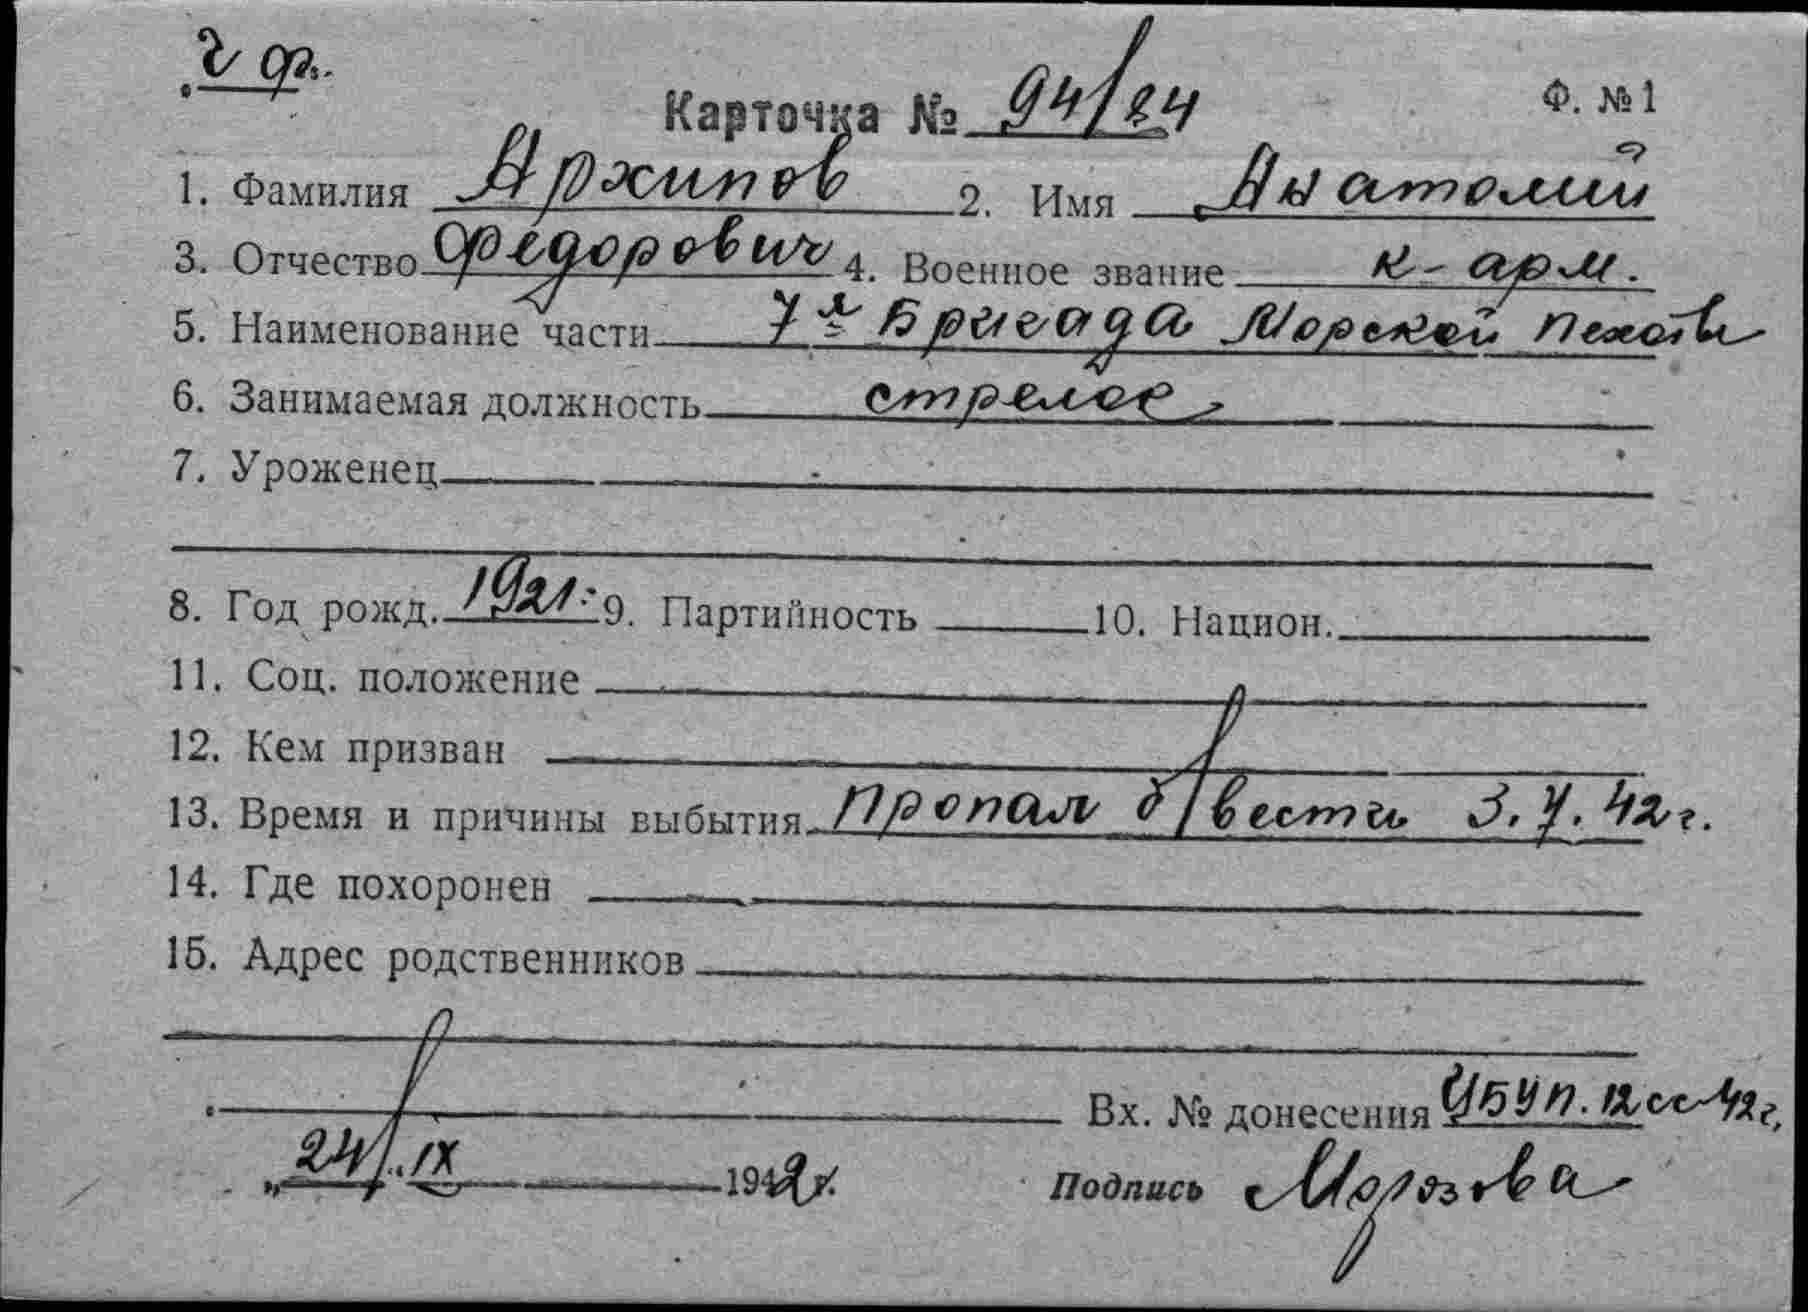 ч ф.
Карточка № 94/24 Ф. № 1
1. Фамилия Архипов 2. Имя Анатолий
3. Отчество Федорович 4. Военное звание к-арм.
5. Наименование части 7я Бригада Морской Пехоты
6. Занимаемая должность стрелок
7. Уроженец
8. Год рожд. 1921. 9. Партийность 10. Национ.
11. Соц. положение
12. Кем призван
13. Время и причины выбытия Пропал б/вести 3.7.42г.
14. Где похоронен
15. Адрес родственников
Вх. № донесения УБУП. 12сс-42г.
„24/" IX 1942г.
Подпись Морозова